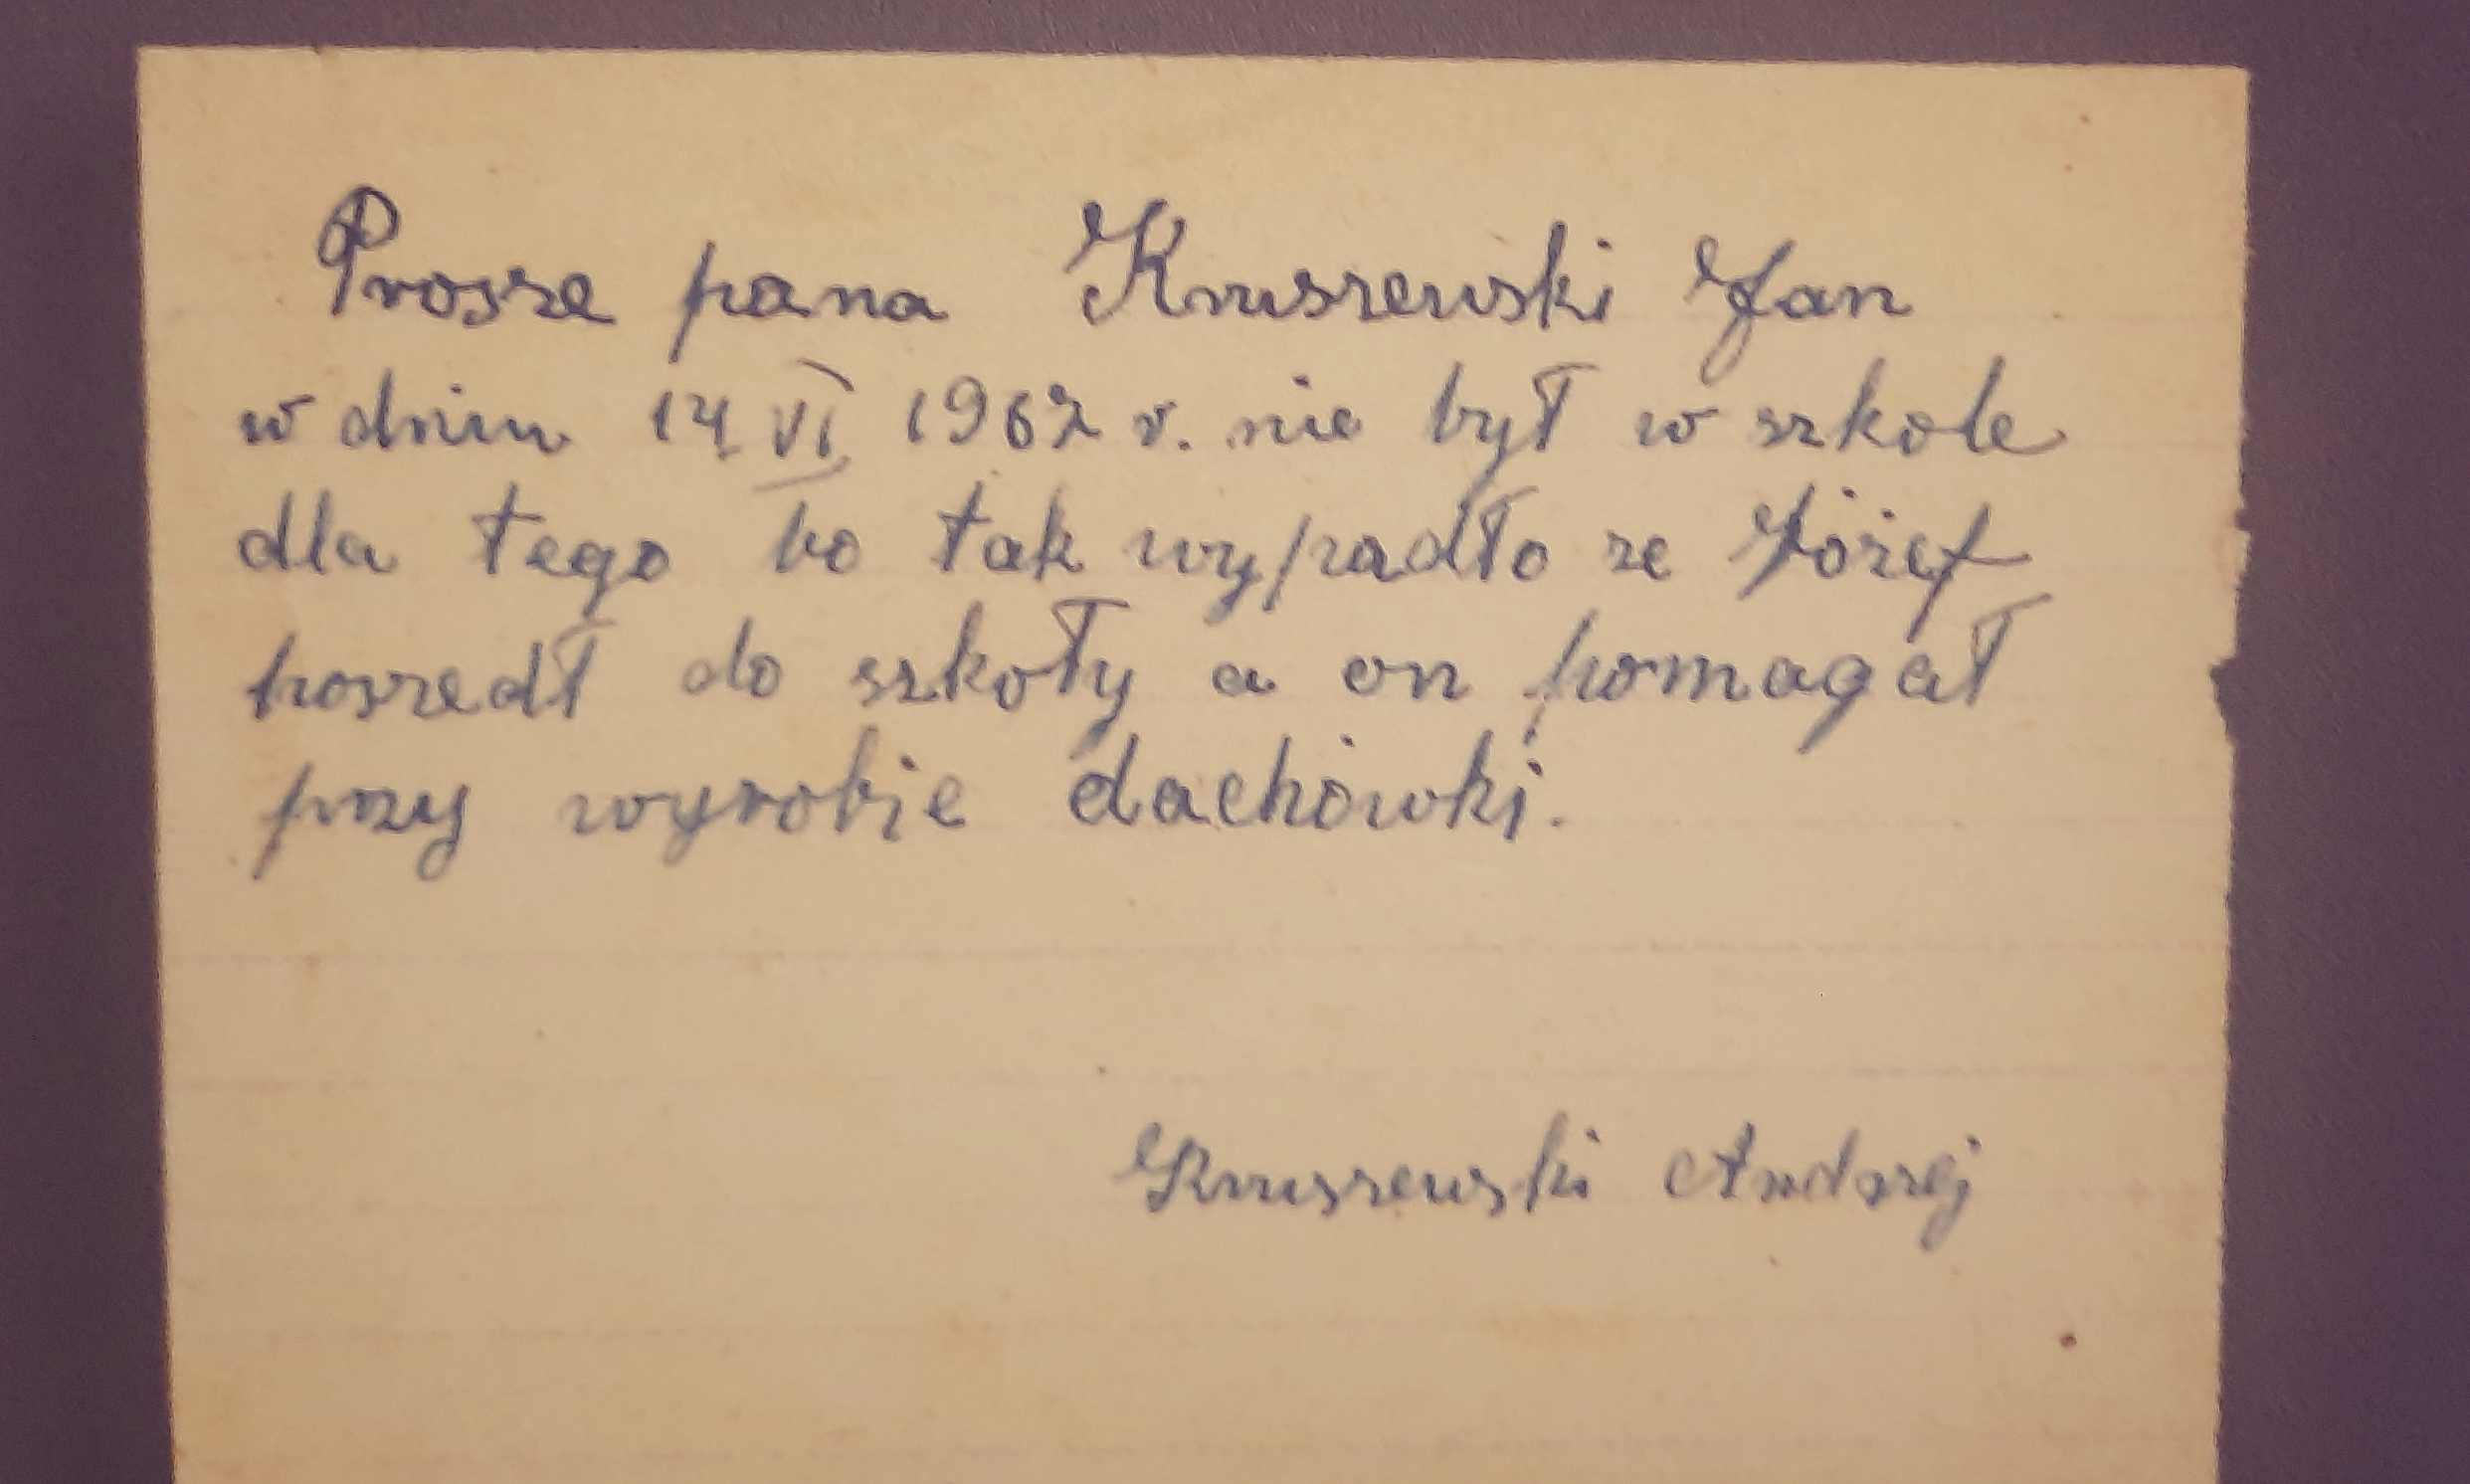 Prosze pana Kruszewski Jan
w dniu 14 VI 1967 r. nie był w szkole
dla tego bo tak wypadło ze Józef
poszedł do szkoły a on pomagał
przy wyrobie dachówki.
Kruszewski Andrzej